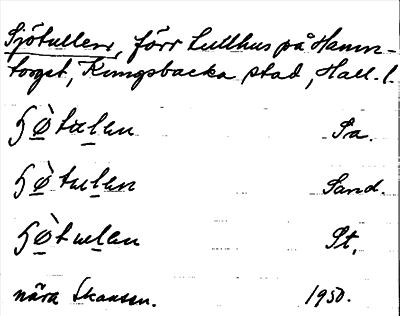 Sjötullen, förr tullhus på Hamn-
torget, Kungsbacka stad, Hall. l.
ʃø̀tulen Sa.
ʃø̀tulen Sand.
ʃø̀tulen St.
nära Skansen. 1950.